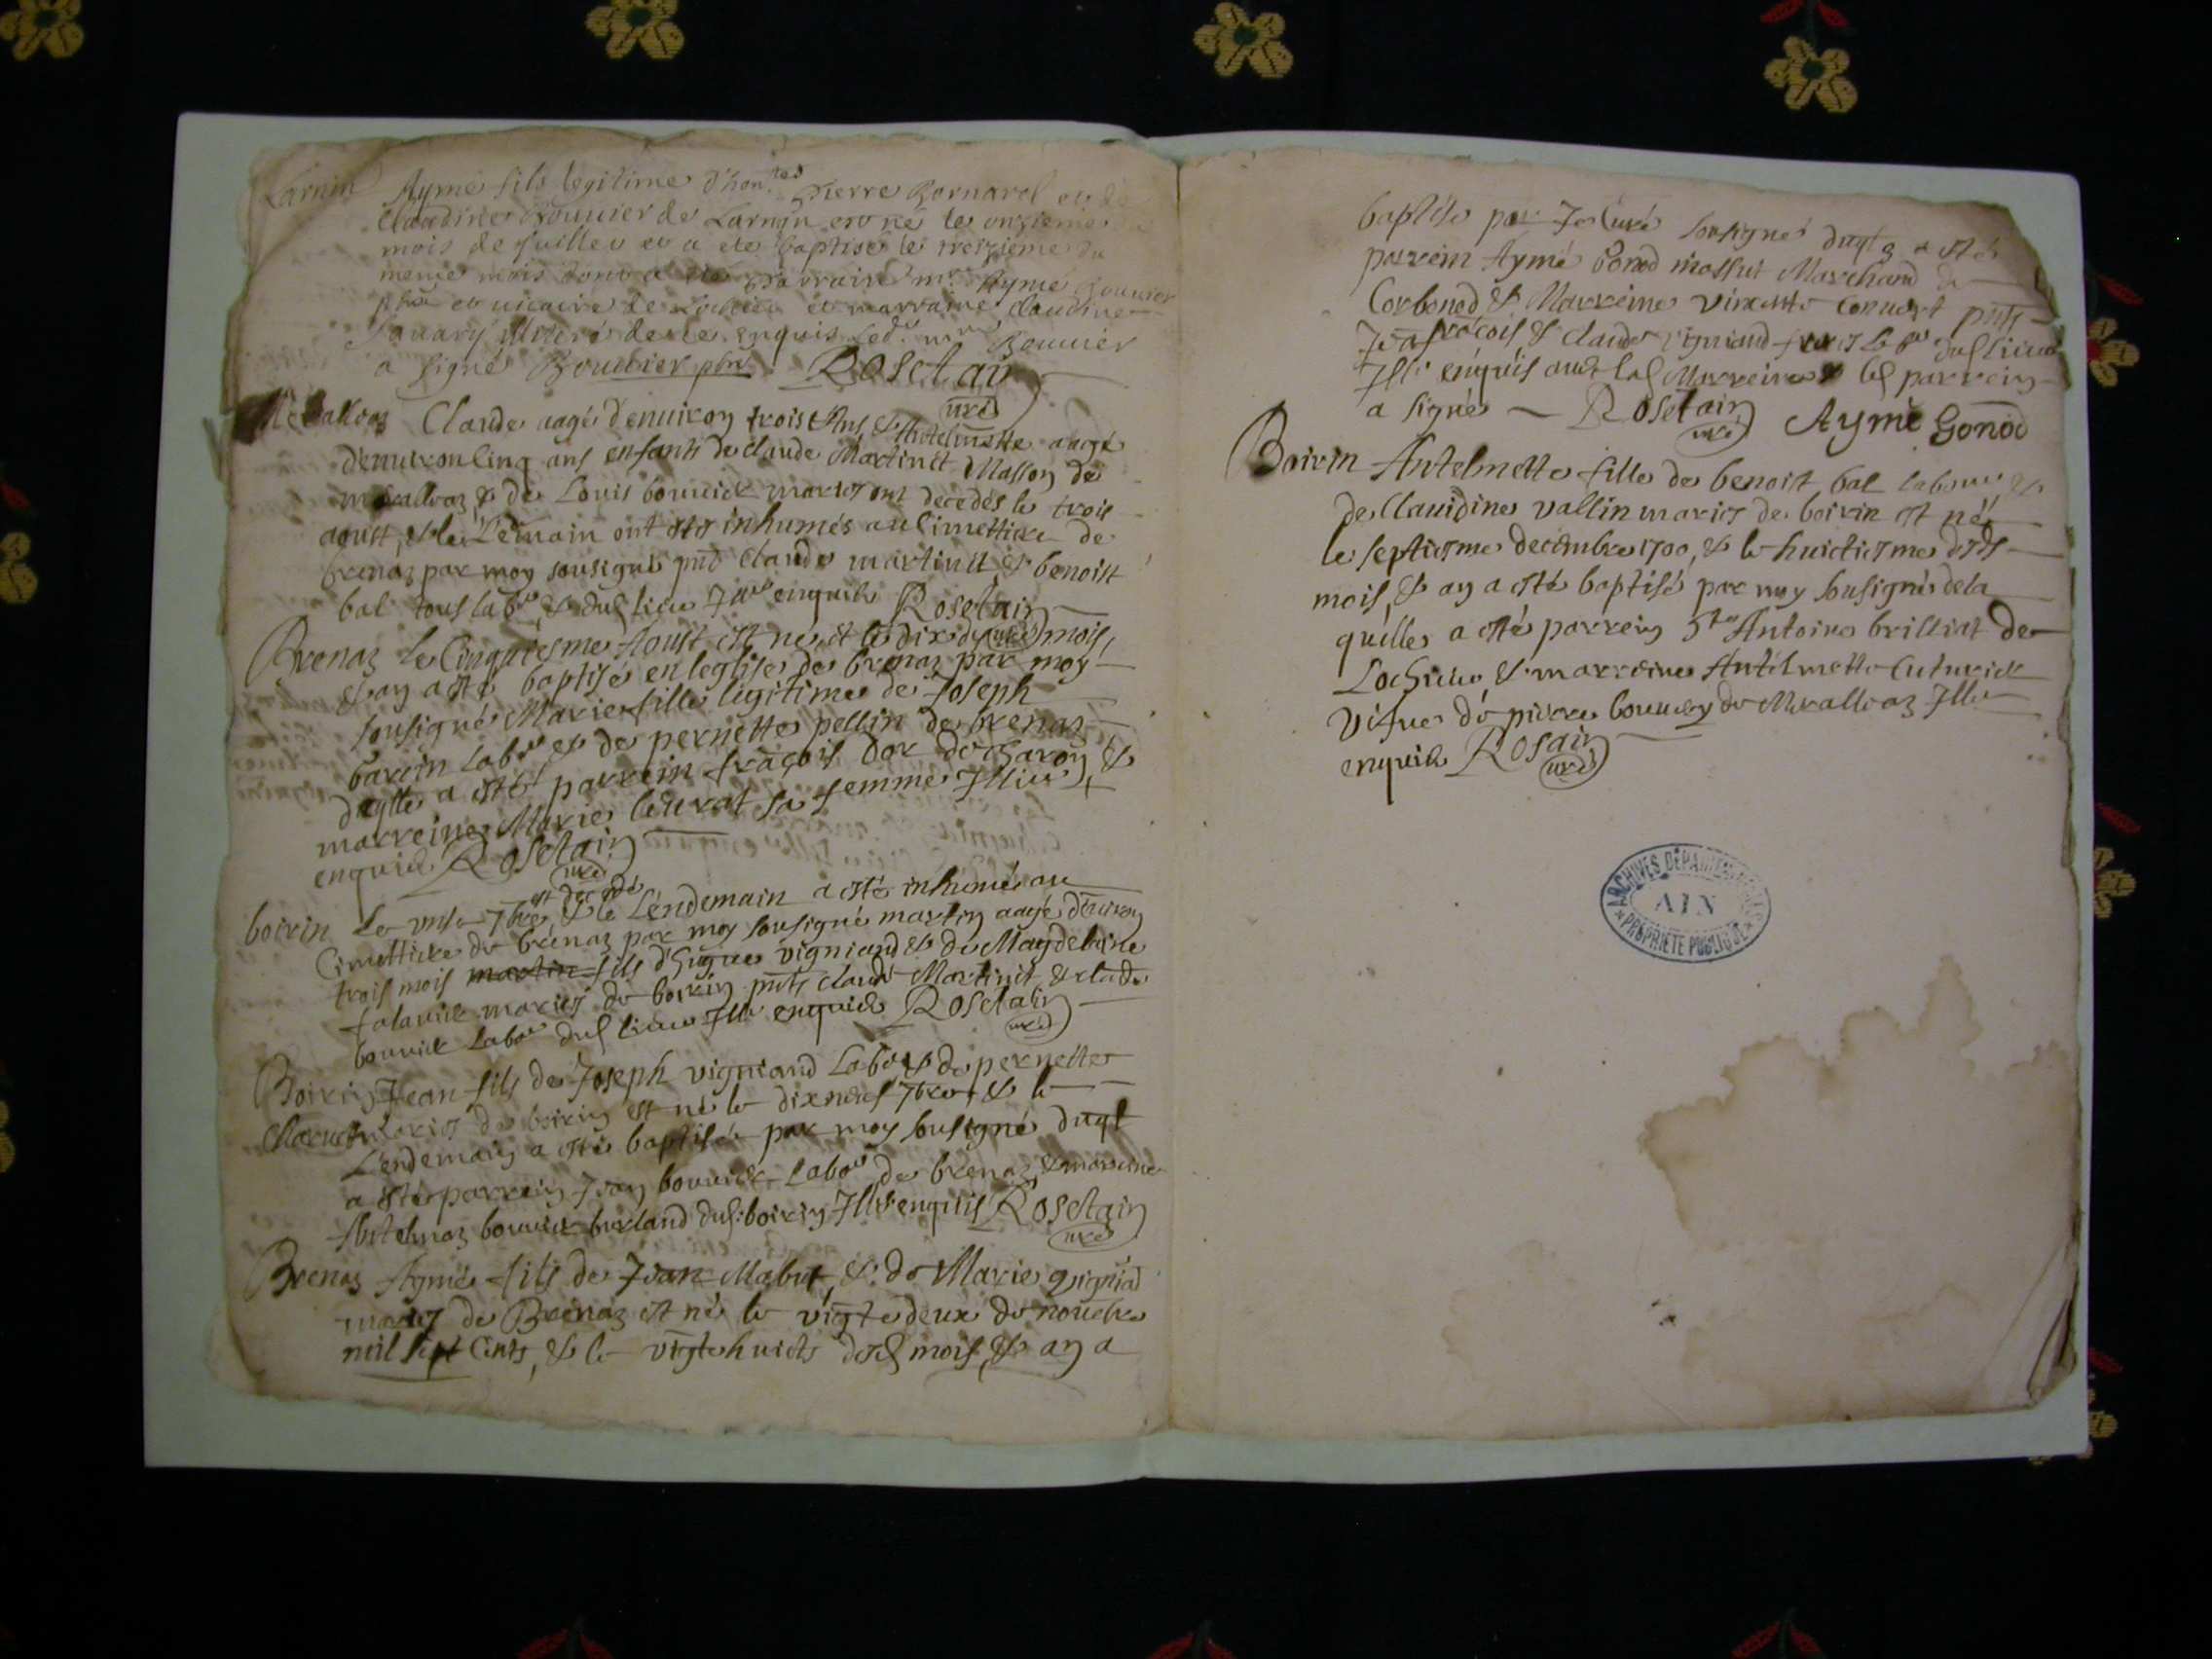 Larnin Aymé fils legitime d'hon.tes Pierre Bornarel et de
Claudine Bouuier de Larnin est né le onzieme
mois de Juillet et a ete baptisé le treizieme du
meme mois dont a ete parrain mre Aymé Bouuier
pbre et uicaire de et marraine Claudine
Sauary de ce enquis Led. mre Bouuier
a signé Bouuier pbre Rosetain
curé
Meralloaz Claude aagé d'enuiron trois Ans, & Antelmette aagé
d'enuiron Cinq ans enfants de Claude Martinet Masson de
meralloaz & de Louis bouuier mariés ont decedés le trois
aoust, & le Lẽmain ont estés inhumés au Cimettiere de
brenaz par moy sousigné pnt Claude martinet & benoist
bal tous labrs & dud lieu Illrés enquis Rosetain
curé
Brenaz Le Cinquiesme Aoust est né, et le dix dud mois,
& an a esté baptisé en leglise de brenaz par moy
sousigné Marie fille légitime de Joseph
barrin Labr et de pernette pellin de brenaz
d'aqlle a esté parrein frãçois dor de charon &
marreine Marie leurat sa femme Illrés
enquis Rosetain
curé
boirin Le unse 7bre est decedé & le Léndemain a esté inhumé au
Cimettiere de brénaz par moy sousigné martin aagé d'enuiron
trois mois martin fils d'hugue vigniand & de Magdelaine
falauier mariés de boirin pnts claude Martinet, & claude
bouuier Labrs dud lieu Illrés enquis Rosetain
curé
Boirin Jean fils de Joseph vigniand Labr & de pernette
Charuet mariés de boirin est né le dixneuf 7bre & le
L'endemain a esté baptisé par moy sousigné duql
a esté parrein Jean bouuier Labr de brenaz & marreine
Antelmaz bouuier burland dud: boirin Illrés enquis Rosetain
curé
Brenaz Aymé fils de Jean Mabut & de Marie vigniãd
mariés de Brenaz est né le vigte deux de nouebre
mil sept Cents, & le vigte huicts desd mois, & an a
baptisé par Je Curé sousigné duql a esté
parrein Aymé Gonod mossut Marchand de
Corbonod & Marreine vincente Conuert pnts
Jean frãcois & claude vigniand freres Labrs dud lieu
Illrés enquis auec lad Marreine & led parrein
a signé Rosetain Aymé Gonod
curé
Boirin Antelmette fille de benoist bal labour &
de Clauidine vallin mariés de boirin est né
le septiesme decembre 1700, & le huictiesme desd
mois, & an a esté baptisé par moy sousigné de la
quelle a esté parrein Antoine brilliat de
Lochieu & marreine Antelmette Cuturier
vefue de pierre bouuery de Meralloaz Illrés
enquis Rosain
curé
ARCHIVES DÉPARTEMENTALES
AIN
PROPRIÉTÉ PUBLIQUE